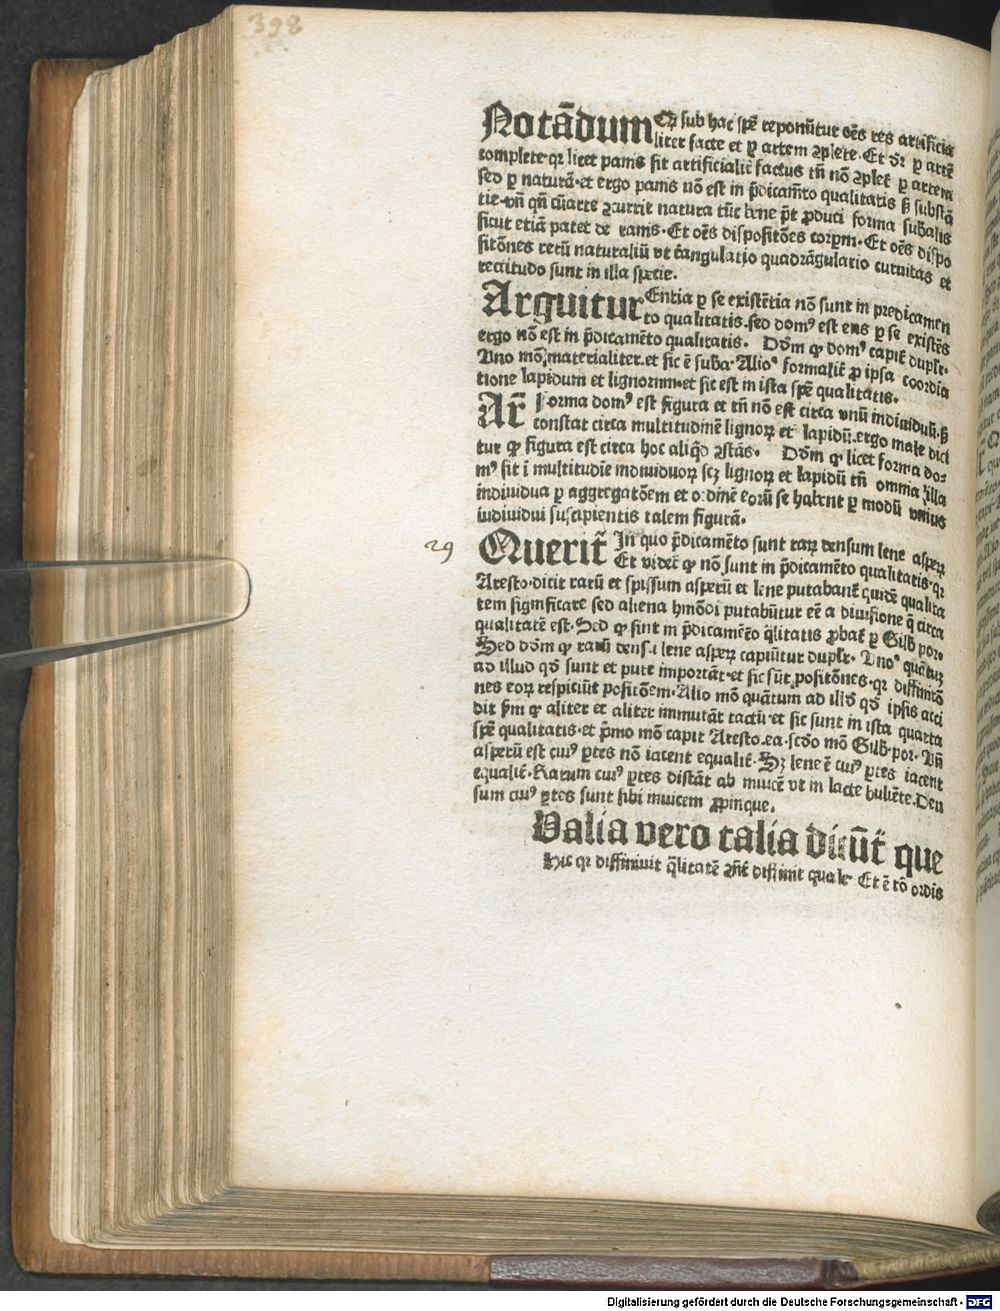 398
Notādum Qꝫ sub hac spē reponūtur oēs res artificia
liter facte et ꝑ artem ꝯplete. Et dr̄ ꝑ artē
complete. qr licet panis sit artificialit̄ factus tn̄ nō ꝯplet̄ ꝑ artem
sed ꝑ naturā. et ergo panis nō est in p̄dicamēto qualitatis sꝫ substā
tie. vn̄ qn̄ cū arte ꝯcurrit natura tūc bene p̄t ꝓduci forma sub̄alis
sicut etiā patet de ramis. Et oēs dispositōes corpꝝm. Et oēs dispo
sitōnes rerū naturaliū vt triangulatio quadrāgulatio curuitas et
rectitudo sunt in illa specie.
Arguitur Entia ꝑ se existētia nō sunt in predicamen
to qualitatis. sed domꝰ est ens ꝑ se existēs
ergo nō est in p̄dicamēto qualitatis. Dōm ꝙ domꝰ capit̄ duplr̄.
Vno mō materialiter. et sic ē suba. Alioº formalit̄ ꝓ ipsa coordia
tione lapidum et lignorum. et sic est in ista spē qualitatis.
Ar̄ Forma domꝰ est figura et tn̄ nō est circa vnū indiuiduū. sꝫ
constat circa multitudinē lignoꝝ et lapidū. ergo male dici
tur ꝙ figura est circa hoc aliq̄d ꝯstās. Dōm ꝙ licet forma do-
mꝰ sit ī multitudīe indiuiduoꝝ scꝫ lignoꝝ et lapidū tn̄ omnia illa
indiuidua ꝑ aggregatōem et ordinē eorū se habent ꝑ modū vnius
indiuidui suscipientis talem figurā.
29
Querit̄ In quo p̄dicamēto sunt raꝝ densum lene asperꝝ
Et videt̄ ꝙ nō sunt in p̄dicamēto qualitatis. qr
Aresto. dicit rarū et spissum asperū et lene putabant̄ quidē qualita
tem significare sed aliena hmōi putabūtur eē a diuisione q̄ circa
qualitatē est. Sed ꝙ sint in p̄dicamēto q̄litatis ꝓbat̄ ꝑ Gilb. por.
Sed dōm ꝙ rarū dens. lene asperꝝ capiūtur duplr̄. Vnoº quātuꝫ
ad illud qd̄ sunt et pure importāt. et sic sūt positōnes. qr diffinitō
nes eoꝝ respiciūt positōem. Alio mō quātum ad illd̄ qd̄ ipsis acci
dit ẜm ꝙ aliter et aliter immutāt tactū. et sic sunt in ista quarta
spē qualitatis. et p̄mo mō capit Aresto. ea. scd̄o mō Gilb. por. Vn̄
asperū est cuiꝰ ꝑtes nō iacent equalit̄. Sꝫ lene ē cuiꝰ ꝑtes iacent
equalit̄. Rarum cuiꝰ ꝑtes distāt ab inuicē vt in lacte buliēte. Den
sum cuiꝰ ꝑtes sunt sibi inuicem ꝓpinque.
Valia vero talia dicūt̄ que
Hic qr diffiniuit q̄litatē ꝯn̄t diffinit quale. Et ē rō ordis
Digitalisierung gefördert durch die Deutsche Forschungsgemeinschaft - DFG